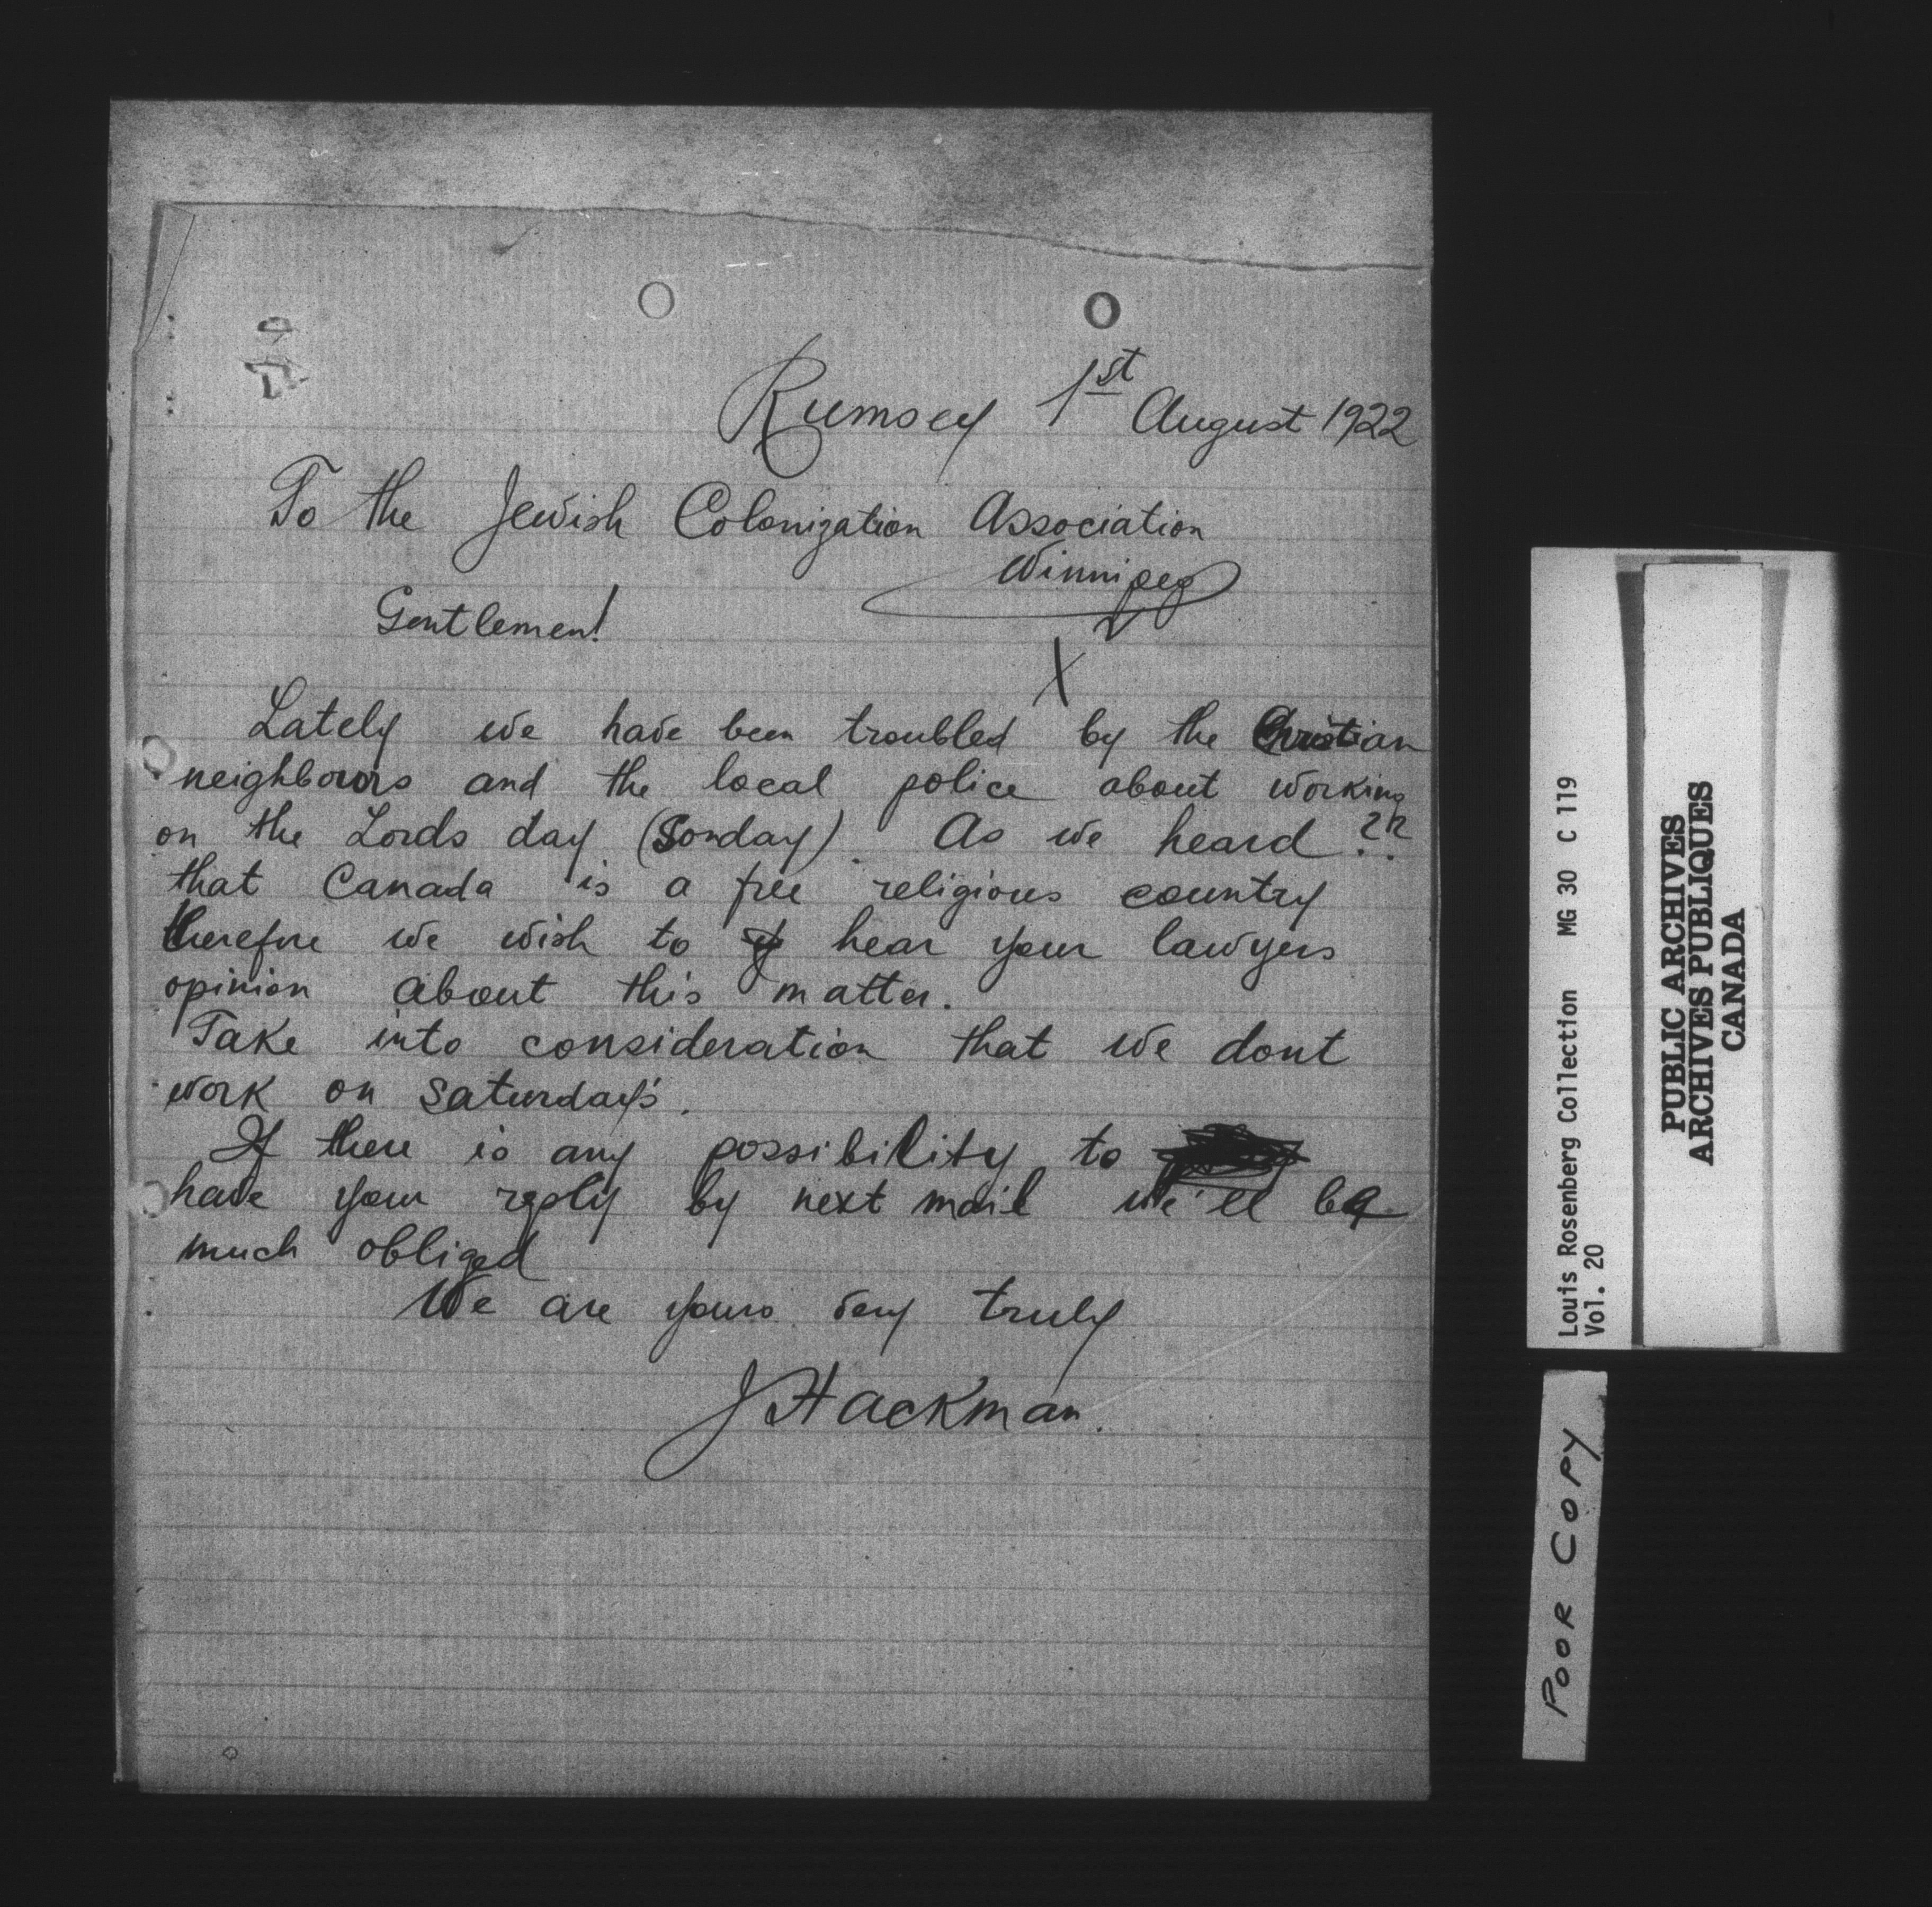 Rumsey 1st August 1922
To the Jewish Colonization Association
Winnipeg
Gentlemen!
Lately we have been troubled by the Christian
neighbours and the local police about working
on the Lords day (Sonday). As we heard ??
that Canada is a free religious country
therefore we wish to hear your lawyers
opinion about this matter.
Take into consideration that we dont
work on Saturday's.
If there is any possibility to
have your reply by next mail we'll be
much obliged
We are yours very truly
J Hackman.
Louis Rosenberg Collection MG 30 C 119
Vol. 20
PUBLIC ARCHIVES
ARCHIVES PUBLIQUES
CANADA
POOR COPY